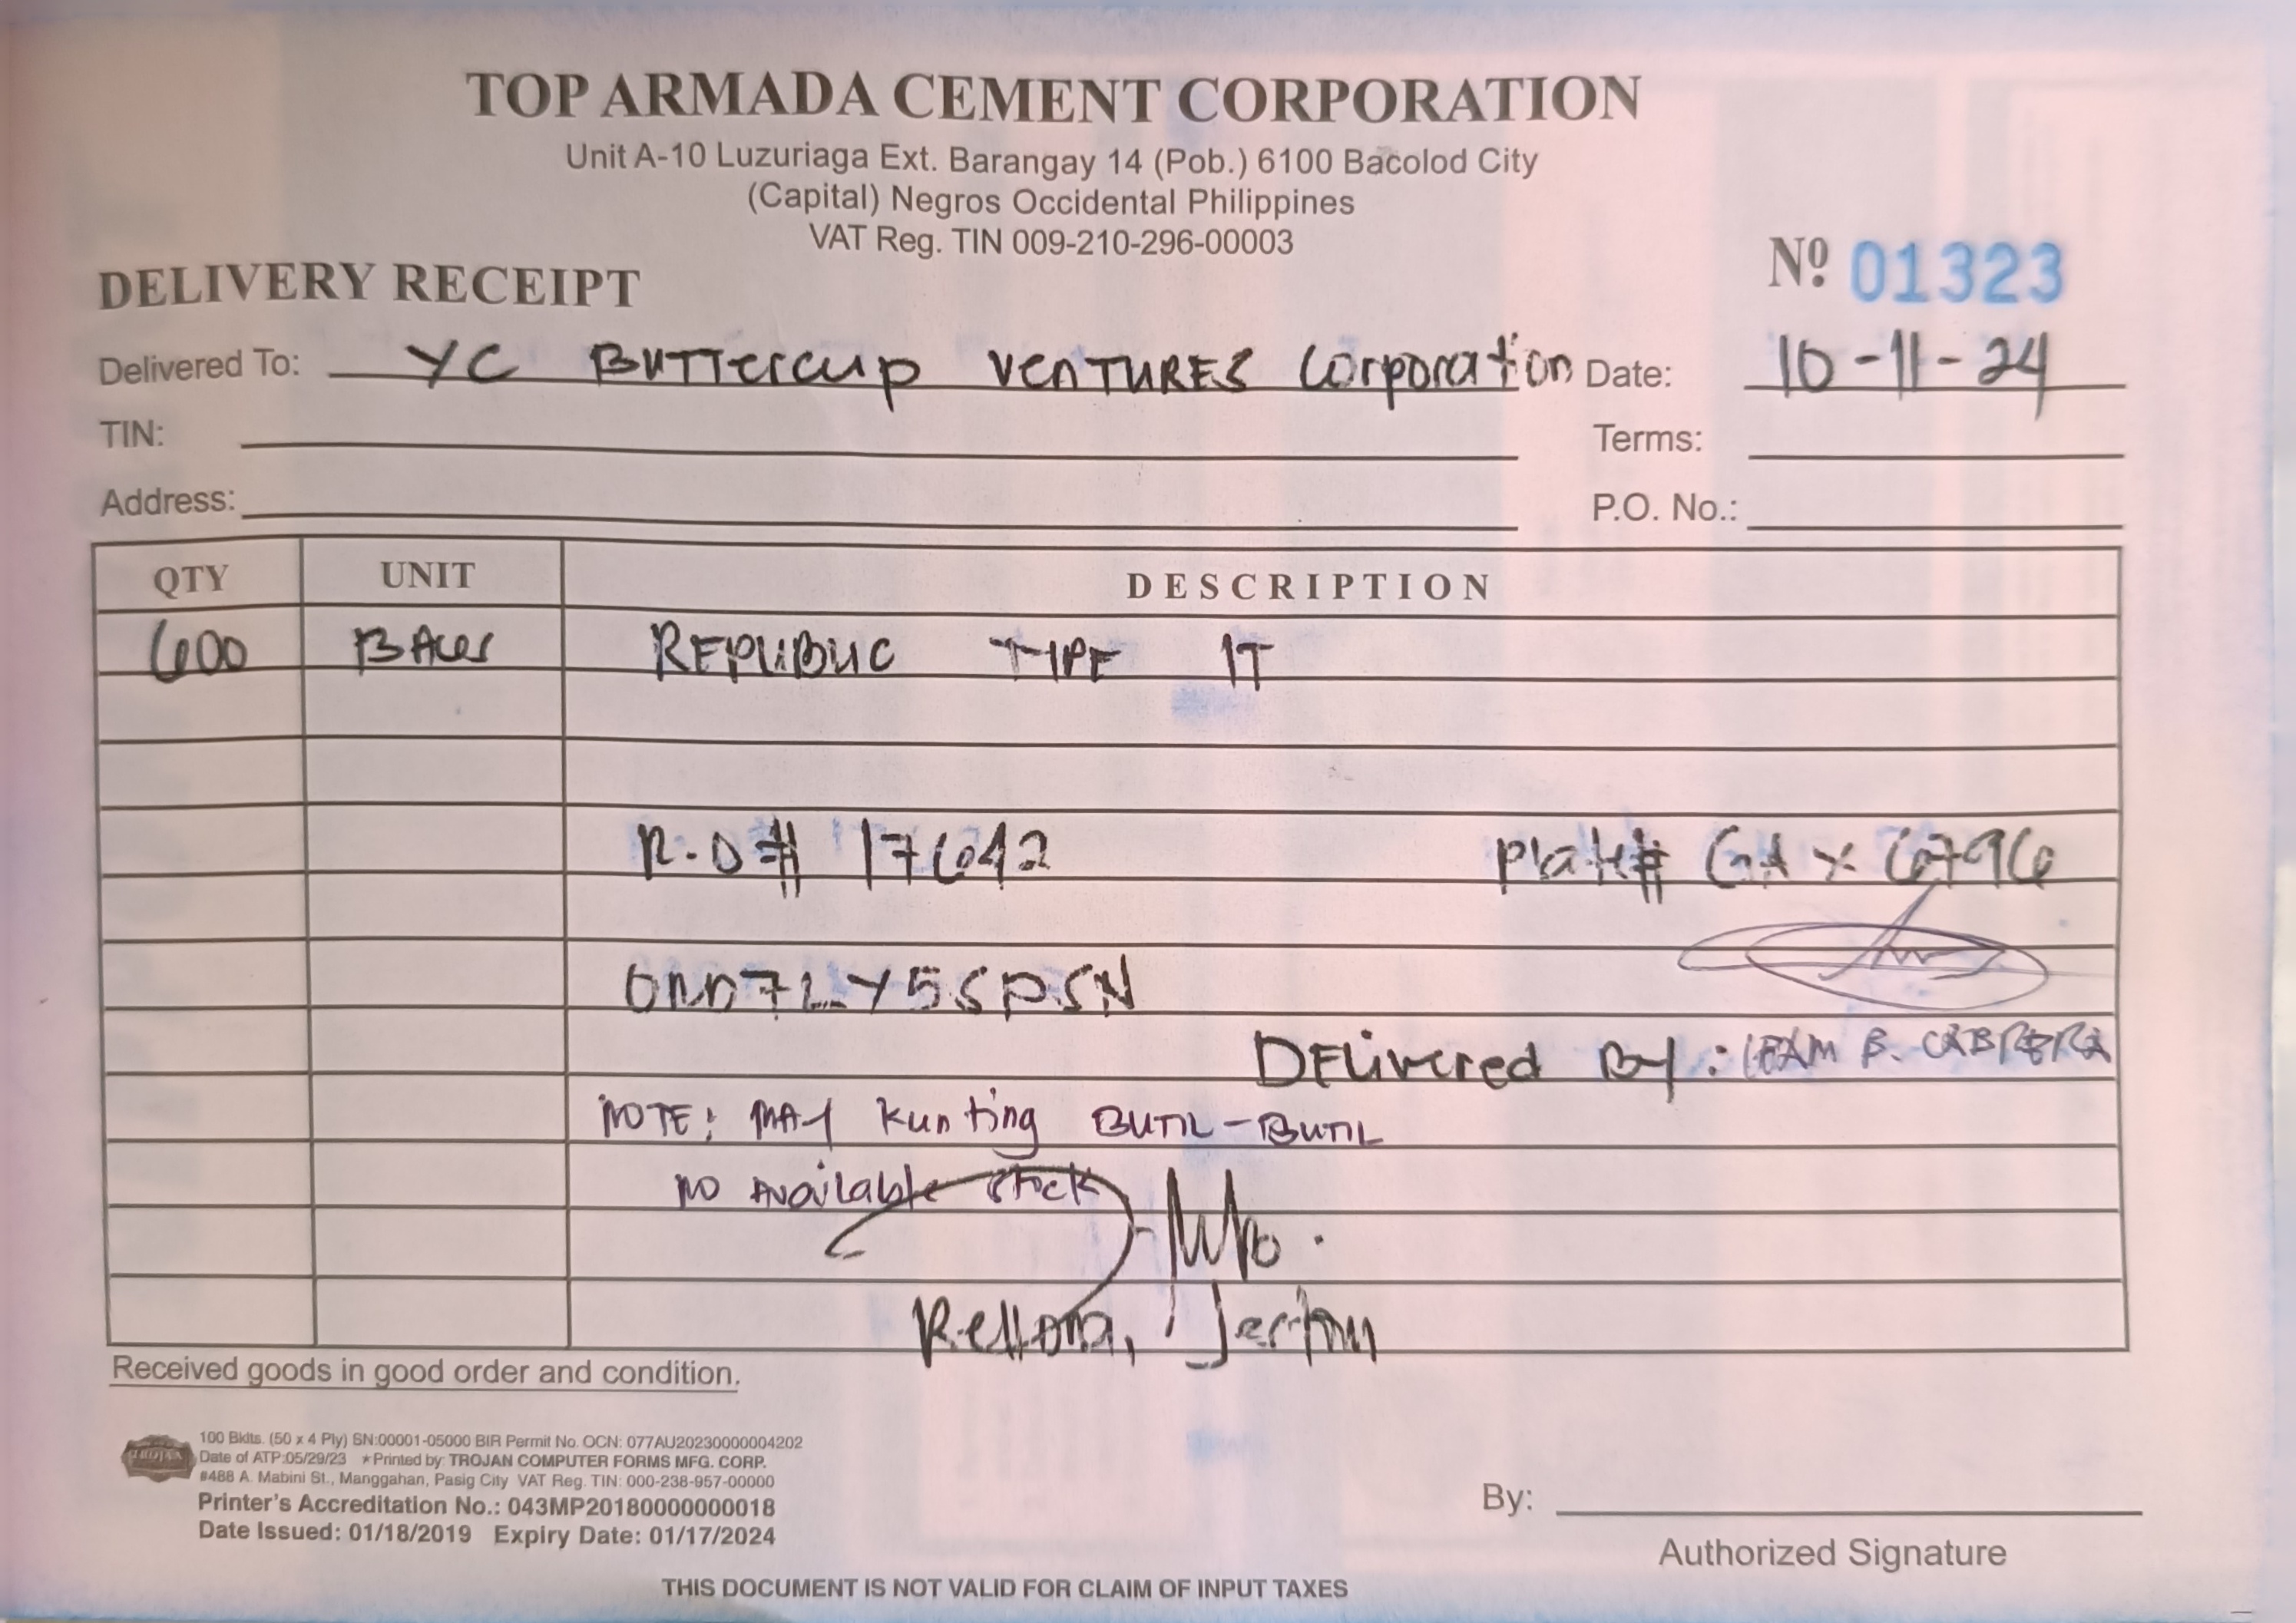 TOP ARMADA CEMENT CORPORATION
Unit A-10 Luzuriaga Ext. Barangay 14 (Pob.) 6100 Bacolod City
(Capital) Negros Occidental Philippines
VAT Reg. TIN 009-210-296-00003
DELIVERY RECEIPT
Nº 01323
Delivered To: YC BUTTercup VENTURES Corporation Date: 10-11-24
TIN: Terms:
Address: P.O. No.:
QTY UNIT DESCRIPTION
600 BAGS REPUBLIC TYPE 1T
R.O# 17642 Plate# GAX 6796
7LY5SPSN
DELivered By: B. CABRERA
NOTE: MAY kunting BUTIL-BUTIL
NO AVAilable stock
Received goods in good order and condition.
100 Bklts. (50 x 4 Ply) SN:00001-05000 BIR Permit No. OCN: 077AU20230000004202
Date of ATP:05/29/23 ★Printed by: TROJAN COMPUTER FORMS MFG. CORP.
#488 A. Mabini St., Manggahan, Pasig City VAT Reg. TIN: 000-238-957-00000
Printer's Accreditation No.: 043MP20180000000018
Date Issued: 01/18/2019 Expiry Date: 01/17/2024
By:
Authorized Signature
THIS DOCUMENT IS NOT VALID FOR CLAIM OF INPUT TAXES